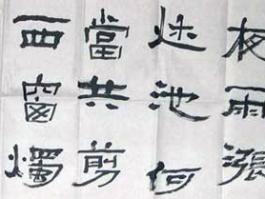 夜雨漲
秋池何
當共剪
西窗燭